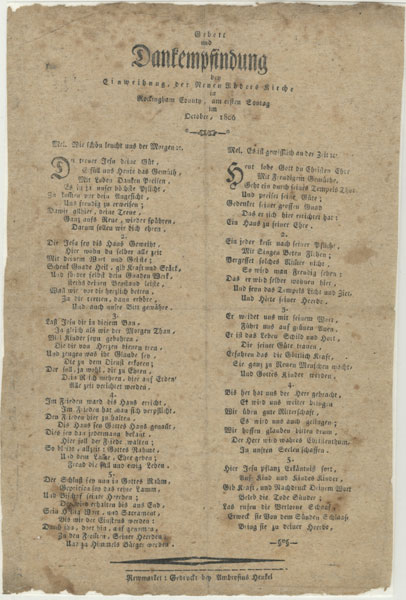 Gebett
und
Dankempfindung
bey
Einweihung, der Neuen Röders Kirche
in
Rockingham County, am ersten Sontag
im
October, 1806
Mel. Wie schön leucht uns der Morgen ꝛc.
Jesu deine Güt,
Erfüll uns Heute das Gemüth,
Mit Lob- Danken Preissen
Es ist unser höchste Pflicht,
vor dein Angesicht
Und freudig zu erweisen;
deine Treue,
Ganz aufs Neue, wieder spühren,
Darum sollen wir dich ehren.
2.
Dir Jesu sey dis Haus
Hier wohn du selber alle zeit
Mit deinem Wort und Geiste;
Schenk Gnade Heil, gib Kraft und Stärk,
selbst dein Werk
deinen Beystand leiste.
Was wir vor dir herzlich betten,
Zu dir tretten,
Und auch unsre Bitt gewähre.
3.
Laß Jesu dir in diesem Bau,
Ja gleich als wie der Morgen Thau,
Viel Kinder seyn gebohren.
Die dir von Herzen dienen treu
Und zeugen was ihr Glaube sey
Die zu dem Dienst erkoren;
ja wohl, die zu Ehren
mehren, hier auf Erden
4.
Im Frieden ward dis Haus erricht,
Im Frieden hat man sich verpflicht,
Den Frieden hier zu halten.
Dis Haus sey Gottes Haus genant,
Dies sey das jederman bekant,
Hier soll der Friede walten;
So bleibt, allzeit: Gottes Rahme,
Und dem Ehre geben;
Fried die füll und ewig Leben.
5.
Der Schluß sey nun in Gottes Nahm,
Gepriesen sey das reine Lamm,
Und Bischof seiner Heerden;
erhalten bis ans End,
Sein Wort, und Sacrament,
Bis wir
Durch ihn, dort an, auf genomen,
Zu den Frommen, Seiner Heerden,
Und zu Himmels Bürger werden.
Mel. Es ist gewißlich an der Zeit ꝛc.
Heut lobe Gott du Christen Chor
Mit Freudigem Gemüthe,
Geht ein durch seines Tempels Thor
Und preiset seine Güte;
Gedenket seiner grossen Gnad
Das er sich hier errichtet hat;
Ein Haus zu seiner Ehre.
2.
Ein jeder leist nach seiner Pflicht,
Mit Singen Beten Flehen;
Vergesset solches nicht,
So wird man Freudig sehen;
Das er wird selber wohnen hier,
Und seyn des Tempels Licht und Zier,
Und Hirte seiner Heerde.
3.
Er weidet uns mit seinem Wort,
Führt uns auf grünen Auen,
Er ist das Leben Schild und Hort,
Die seiner Güte trauen,
Erfahren das die Göttlich Kraft,
Sie ganz zu Neuen Menschen macht,
Und Gottes Kinder werden.
4.
Bis her hat uns der Herr gebracht,
Es wird uns weiter bringen
Wir üben gute Ritterschaft,
Es wird uns auch gelingen;
Wir hoffen glauben bitten drum,
Der Herr wird wahres Christenthum,
In unsren Seelen schaffen.
5.
Hier Jesu pflanz Erkäntniß fort,
Auf Kind und Kindes Kinder,
Gib Kraft, und Nachdruck Deinem Wort
Beleb die Tode Sünder;
Las rufen die Verlorne Schaf,
Erweck sie Von dem Sünden Schlaf,
Bring sie zu deiner Heerde.
Newmarket: Gedruckt bey Ambrosius Henkel